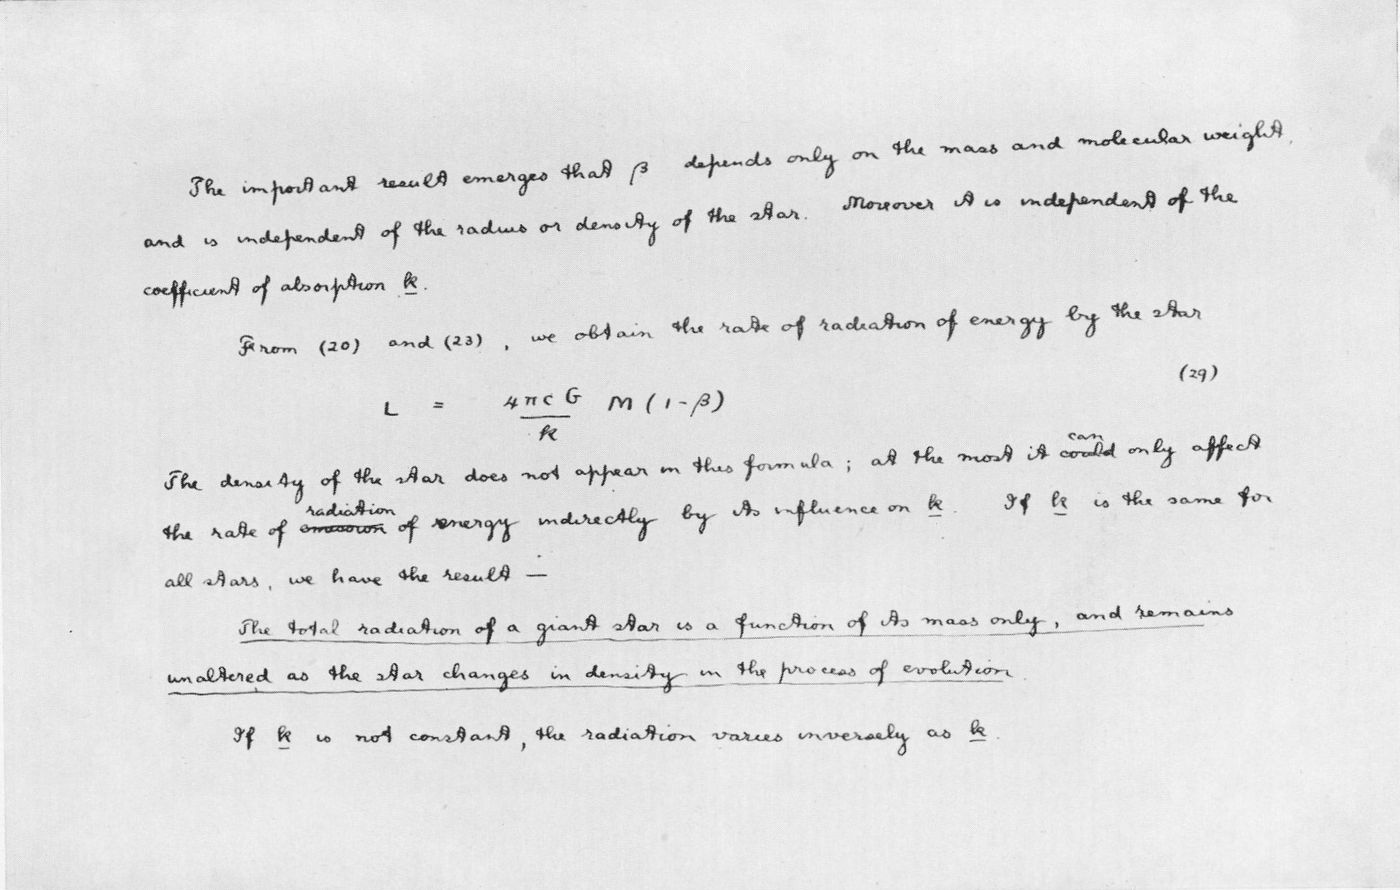 The important result emerges that β depends only on the mass and molecular weight,
and is independent of the radius or density of the star. Moreover it is independent of the
coefficient of absorption k.
From (20) and (23), we obtain the rate of radiation of energy by the star
(29)
L = 4πcG/k M(1-β)
can
The density of the star does not appear in this formula; at the most it could only affect
radiation
the rate of emission of energy indirectly by its influence on k. If k is the same for
all stars, we have the result —
The total radiation of a giant star is a function of its mass only, and remains
unaltered as the star changes in density in the process of evolution.
If k is not constant, the radiation varies inversely as k.